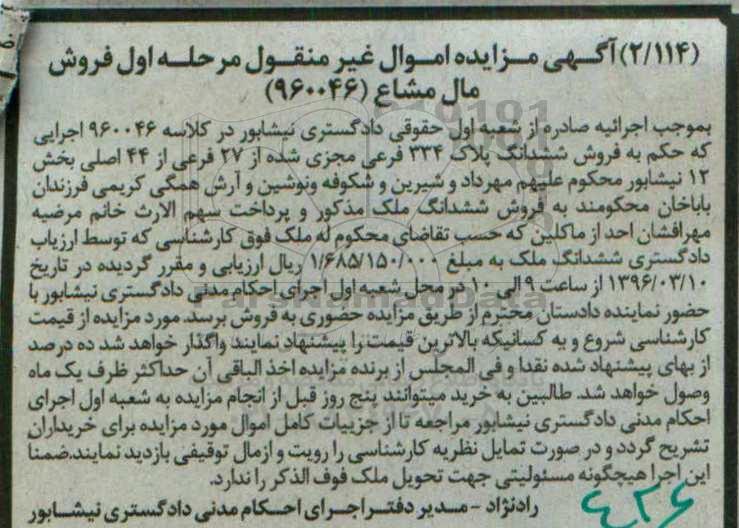 (۲/۱۱۴) آگهی مزایده اموال غیر منقول مرحله اول فروش
مال مشاع (۹۶۰۰۴۶)
بموجب اجرائیه صادره از شعبه اول حقوقی دادگستری نیشابور در کلاسه ۹۶۰۰۴۶ اجرایی
که حکم به فروش ششدانگ پلاک ۳۳۴ فرعی مجزی شده از ۲۷ فرعی از ۴۴ اصلی بخش
۱۲ نیشابور محکوم علیهم مهرداد و شیرین و شکوفه ونوشین و آرش همگی کریمی فرزندان
باباخان محکومند به فروش ششدانگ ملک مذکور و پرداخت سهم الارث خانم مرضیه
مهرافشان احد از ماکلین که حسب تقاضای محکوم له ملک فوق کارشناسی که توسط ارزیاب
دادگستری ششدانگ ملک به مبلغ ۱/۶۸۵/۱۵۰/۰۰۰ ریال ارزیابی و مقرر گردیده در تاریخ
۱۳۹۶/۰۳/۱۰ از ساعت ۹ الی ۱۰ در محل شعبه اول اجرای احکام مدنی دادگستری نیشابور با
حضور نماینده دادستان محترم از طریق مزایده حضوری به فروش برسد. مورد مزایده از قیمت
کارشناسی شروع و به کسانیکه بالاترین قیمت را پیشنهاد نمایند واگذار خواهد شد ده درصد
از بهای پیشنهاد شده نقدا و فی المجلس از برنده مزایده اخذ الباقی آن حداکثر ظرف یک ماه
وصول خواهد شد. طالبین به خرید میتوانند پنج روز قبل از انجام مزایده به شعبه اول اجرای
احکام مدنی دادگستری نیشابور مراجعه تا از جزییات کامل اموال مورد مزایده برای خریداران
تشریح گردد و در صورت تمایل نظریه کارشناسی را رویت و ازمال توقیفی بازدید نمایند.ضمناً
این اجرا هیچگونه مسئولیتی جهت تحویل ملک فوق الذکر را ندارد.
رادنژاد - مدیر دفتر اجرای احکام مدنی دادگستری نیشابور
۴۳۶
ParsNamadData